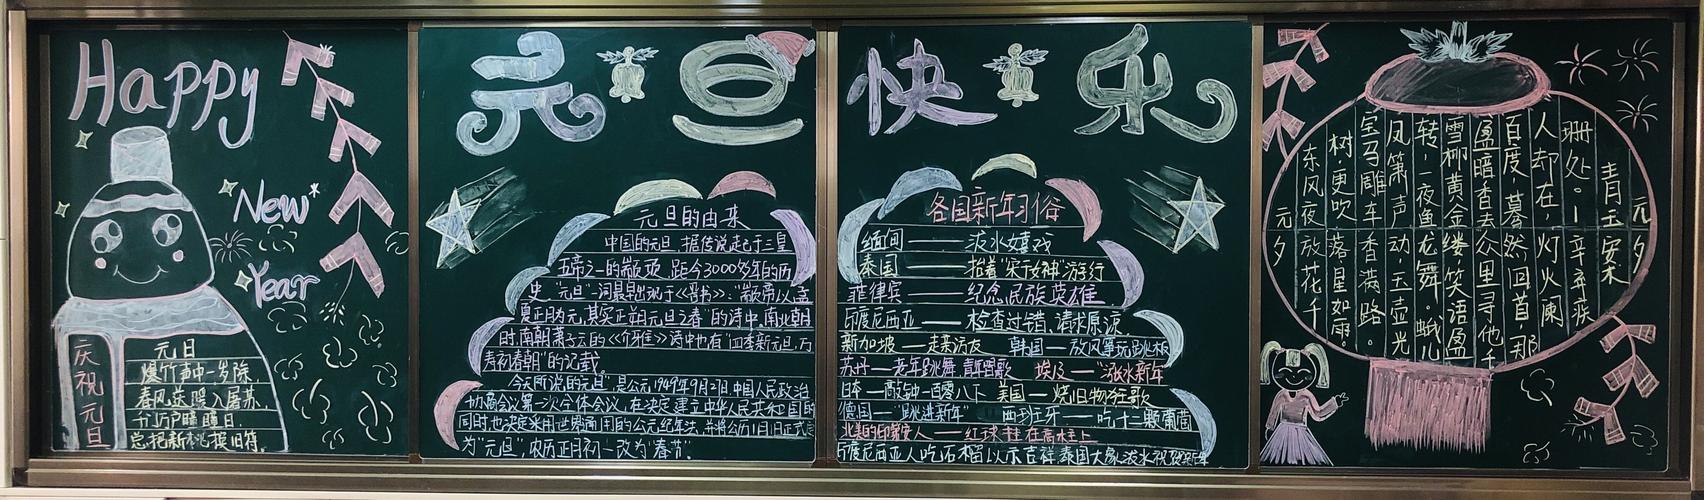 Happy
New
Year
庆祝元旦
元日
爆竹声中一岁除
春风送暖入屠苏.
千门万户曈曈日.
总把新桃换旧符.
元旦快乐
元旦的由来
中国的元旦,据传说起于三皇
五帝之一的颛顼,距今3000多年的历
史"元旦"一词最早出现于《晋书》:"颛帝以孟
夏正月为元,其实正朔元旦之春"的诗中.南北朝
时,南朝萧子云的《介雅》诗中也有"四季新元旦,万
寿初春朝"的记载.
今天所说的"元旦",是公元1949年9月27日,中国人民政治
协商会议第一次全体会议,在决定建立中华人民共和国的
同时也决定采用世界通用的公元纪年法,并将公历1月1日正式定
为"元旦",农历正月初一改为"春节".
各国新年习俗
缅甸——泼水嬉戏
泰国——抬着"宋干女神"游行
菲律宾——纪念民族英雄
印度尼西亚——检查过错,请求原谅
新加坡——走亲访友 韩国——放风筝玩跳板
苏丹——老年跳舞 青年唱歌 埃及——"涨水新年"
日本——敲钟一百零八下 美国——烧旧物狂歌
德国——"跳进新年" 西班牙——吃十二颗葡萄
北美的印第安人——红球挂在高柱上
印度尼西亚人吃稻以示吉祥,泰国大象泼水祝贺新年
元夕
青玉案
东风夜放花千
树.更吹落星如雨.
宝马雕车香满路.
凤箫声动,玉壶光
转,一夜鱼龙舞.蛾儿
雪柳黄金缕.笑语盈
盈暗香去.众里寻他千
百度.蓦然回首,那
人却在,灯火阑
珊处.—辛弃疾
元夕